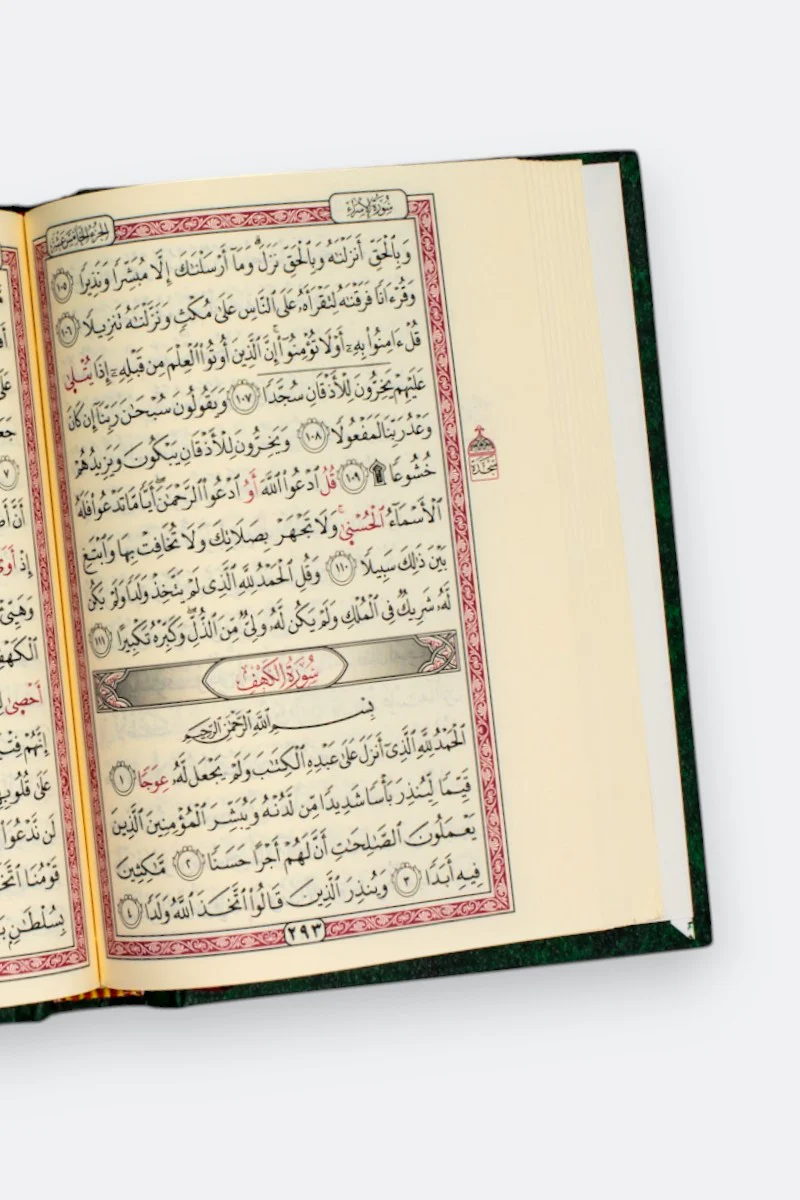 سُورَةُ الإِسْرَاءِ
الجُزْءُ الخَامِسَ عَشَرَ
وَبِالْحَقِّ أَنزَلْنَٰهُ وَبِالْحَقِّ نَزَلَۗ وَمَآ أَرْسَلْنَٰكَ إِلَّا مُبَشِّرًا وَنَذِيرًا ١٠٥
وَقُرْءَانًا فَرَقْنَٰهُ لِتَقْرَأَهُۥ عَلَى النَّاسِ عَلَىٰ مُكْثٍ وَنَزَّلْنَٰهُ تَنزِيلًا ١٠٦
قُلْ ءَامِنُوا۟ بِهِۦٓ أَوْ لَا تُؤْمِنُوٓا۟ۚ إِنَّ الَّذِينَ أُوتُوا۟ الْعِلْمَ مِن قَبْلِهِۦٓ إِذَا يُتْلَىٰ
عَلَيْهِمْ يَخِرُّونَ لِلْأَذْقَانِ سُجَّدًا ١٠٧ وَيَقُولُونَ سُبْحَٰنَ رَبِّنَآ إِن كَانَ
وَعْدُ رَبِّنَا لَمَفْعُولًا ١٠٨ وَيَخِرُّونَ لِلْأَذْقَانِ يَبْكُونَ وَيَزِيدُهُمْ
خُشُوعًا ۩ ١٠٩ قُلُ ادْعُوا۟ اللَّهَ أَوُ ادْعُوا۟ الرَّحْمَٰنَۖ أَيًّا مَّا تَدْعُوا۟ فَلَهُ
الْأَسْمَآءُ الْحُسْنَىٰۚ وَلَا تَجْهَرْ بِصَلَاتِكَ وَلَا تُخَافِتْ بِهَا وَابْتَغِ
بَيْنَ ذَٰلِكَ سَبِيلًا ١١٠ وَقُلِ الْحَمْدُ لِلَّهِ الَّذِى لَمْ يَتَّخِذْ وَلَدًا وَلَمْ يَكُن
لَّهُۥ شَرِيكٌ فِى الْمُلْكِ وَلَمْ يَكُن لَّهُۥ وَلِىٌّ مِّنَ الذُّلِّۖ وَكَبِّرْهُ تَكْبِيرًا ١١١
سُورَةُ الكَهْفِ
بِسْمِ اللَّهِ الرَّحْمَٰنِ الرَّحِيمِ
الْحَمْدُ لِلَّهِ الَّذِىٓ أَنزَلَ عَلَىٰ عَبْدِهِ الْكِتَٰبَ وَلَمْ يَجْعَل لَّهُۥ عِوَجًا ١
قَيِّمًا لِّيُنذِرَ بَأْسًا شَدِيدًا مِّن لَّدُنْهُ وَيُبَشِّرَ الْمُؤْمِنِينَ الَّذِينَ
يَعْمَلُونَ الصَّٰلِحَٰتِ أَنَّ لَهُمْ أَجْرًا حَسَنًا ٢ مَّٰكِثِينَ
فِيهِ أَبَدًا ٣ وَيُنذِرَ الَّذِينَ قَالُوا۟ اتَّخَذَ اللَّهُ وَلَدًا ٤
٢٩٣
سَجْدَة
٧
إِذْ أَوَى
الْكَهْفِ
أَحْصَىٰ
إِنَّهُمْ
عَلَىٰ
لَن نَّدْعُوَا۟
قَوْمُنَا
بِسُلْطَٰنٍ